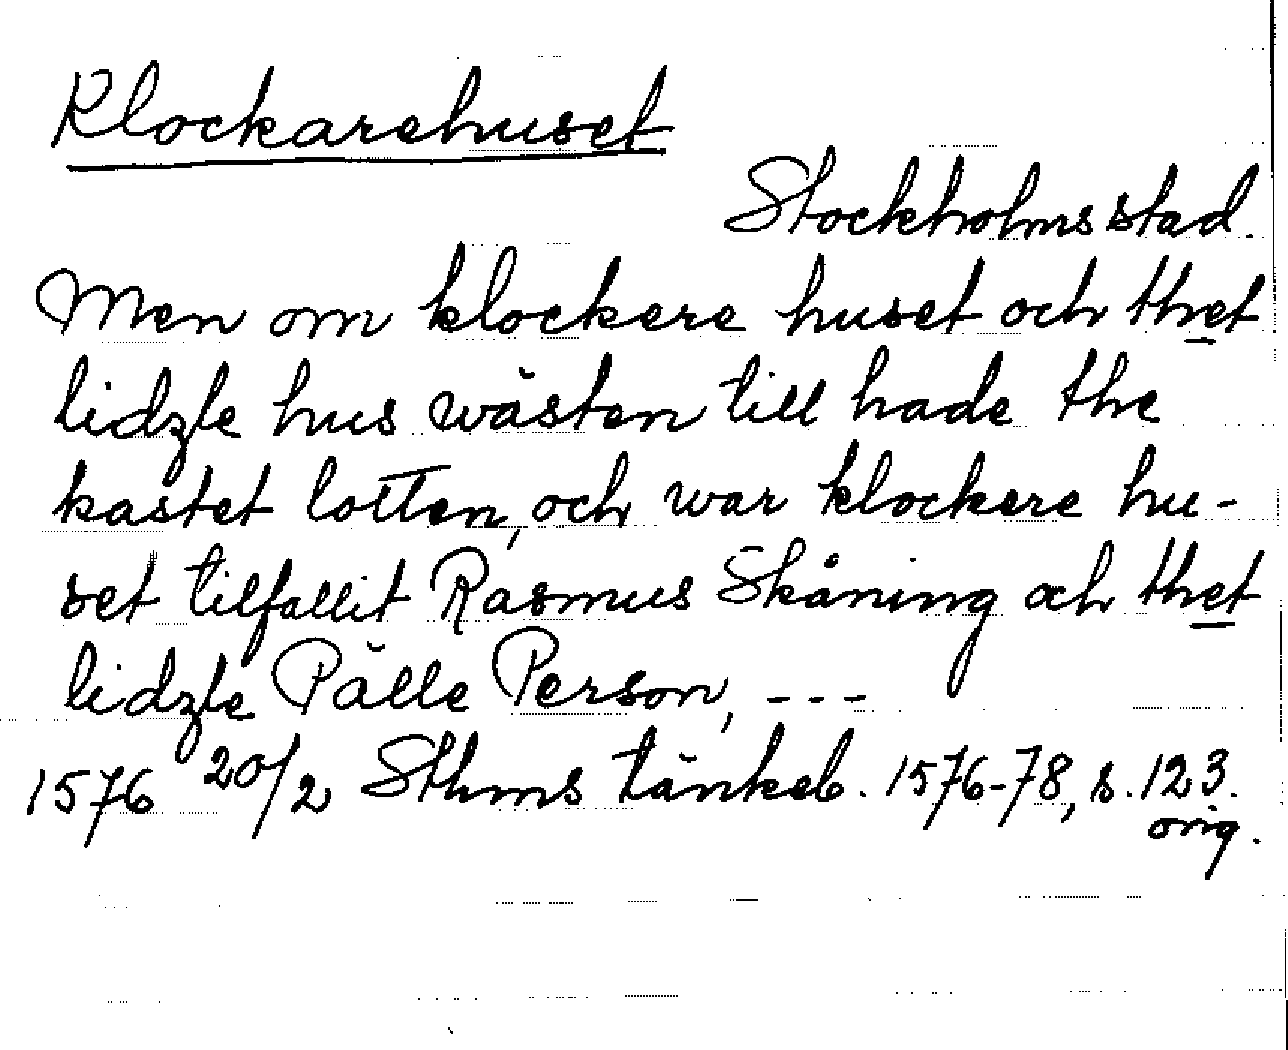 Klockarehuset
Stockholms stad.
Men om klockere huset och thet
lidzle hus wästen till hade the
kastet lotten, och war klockere hu-
set tilfallit Rasmus Skåning och thet
lidzle Pålle Person, ---
1576 20/2 Sthms tänkeb. 1576-78, s. 123.
orig.